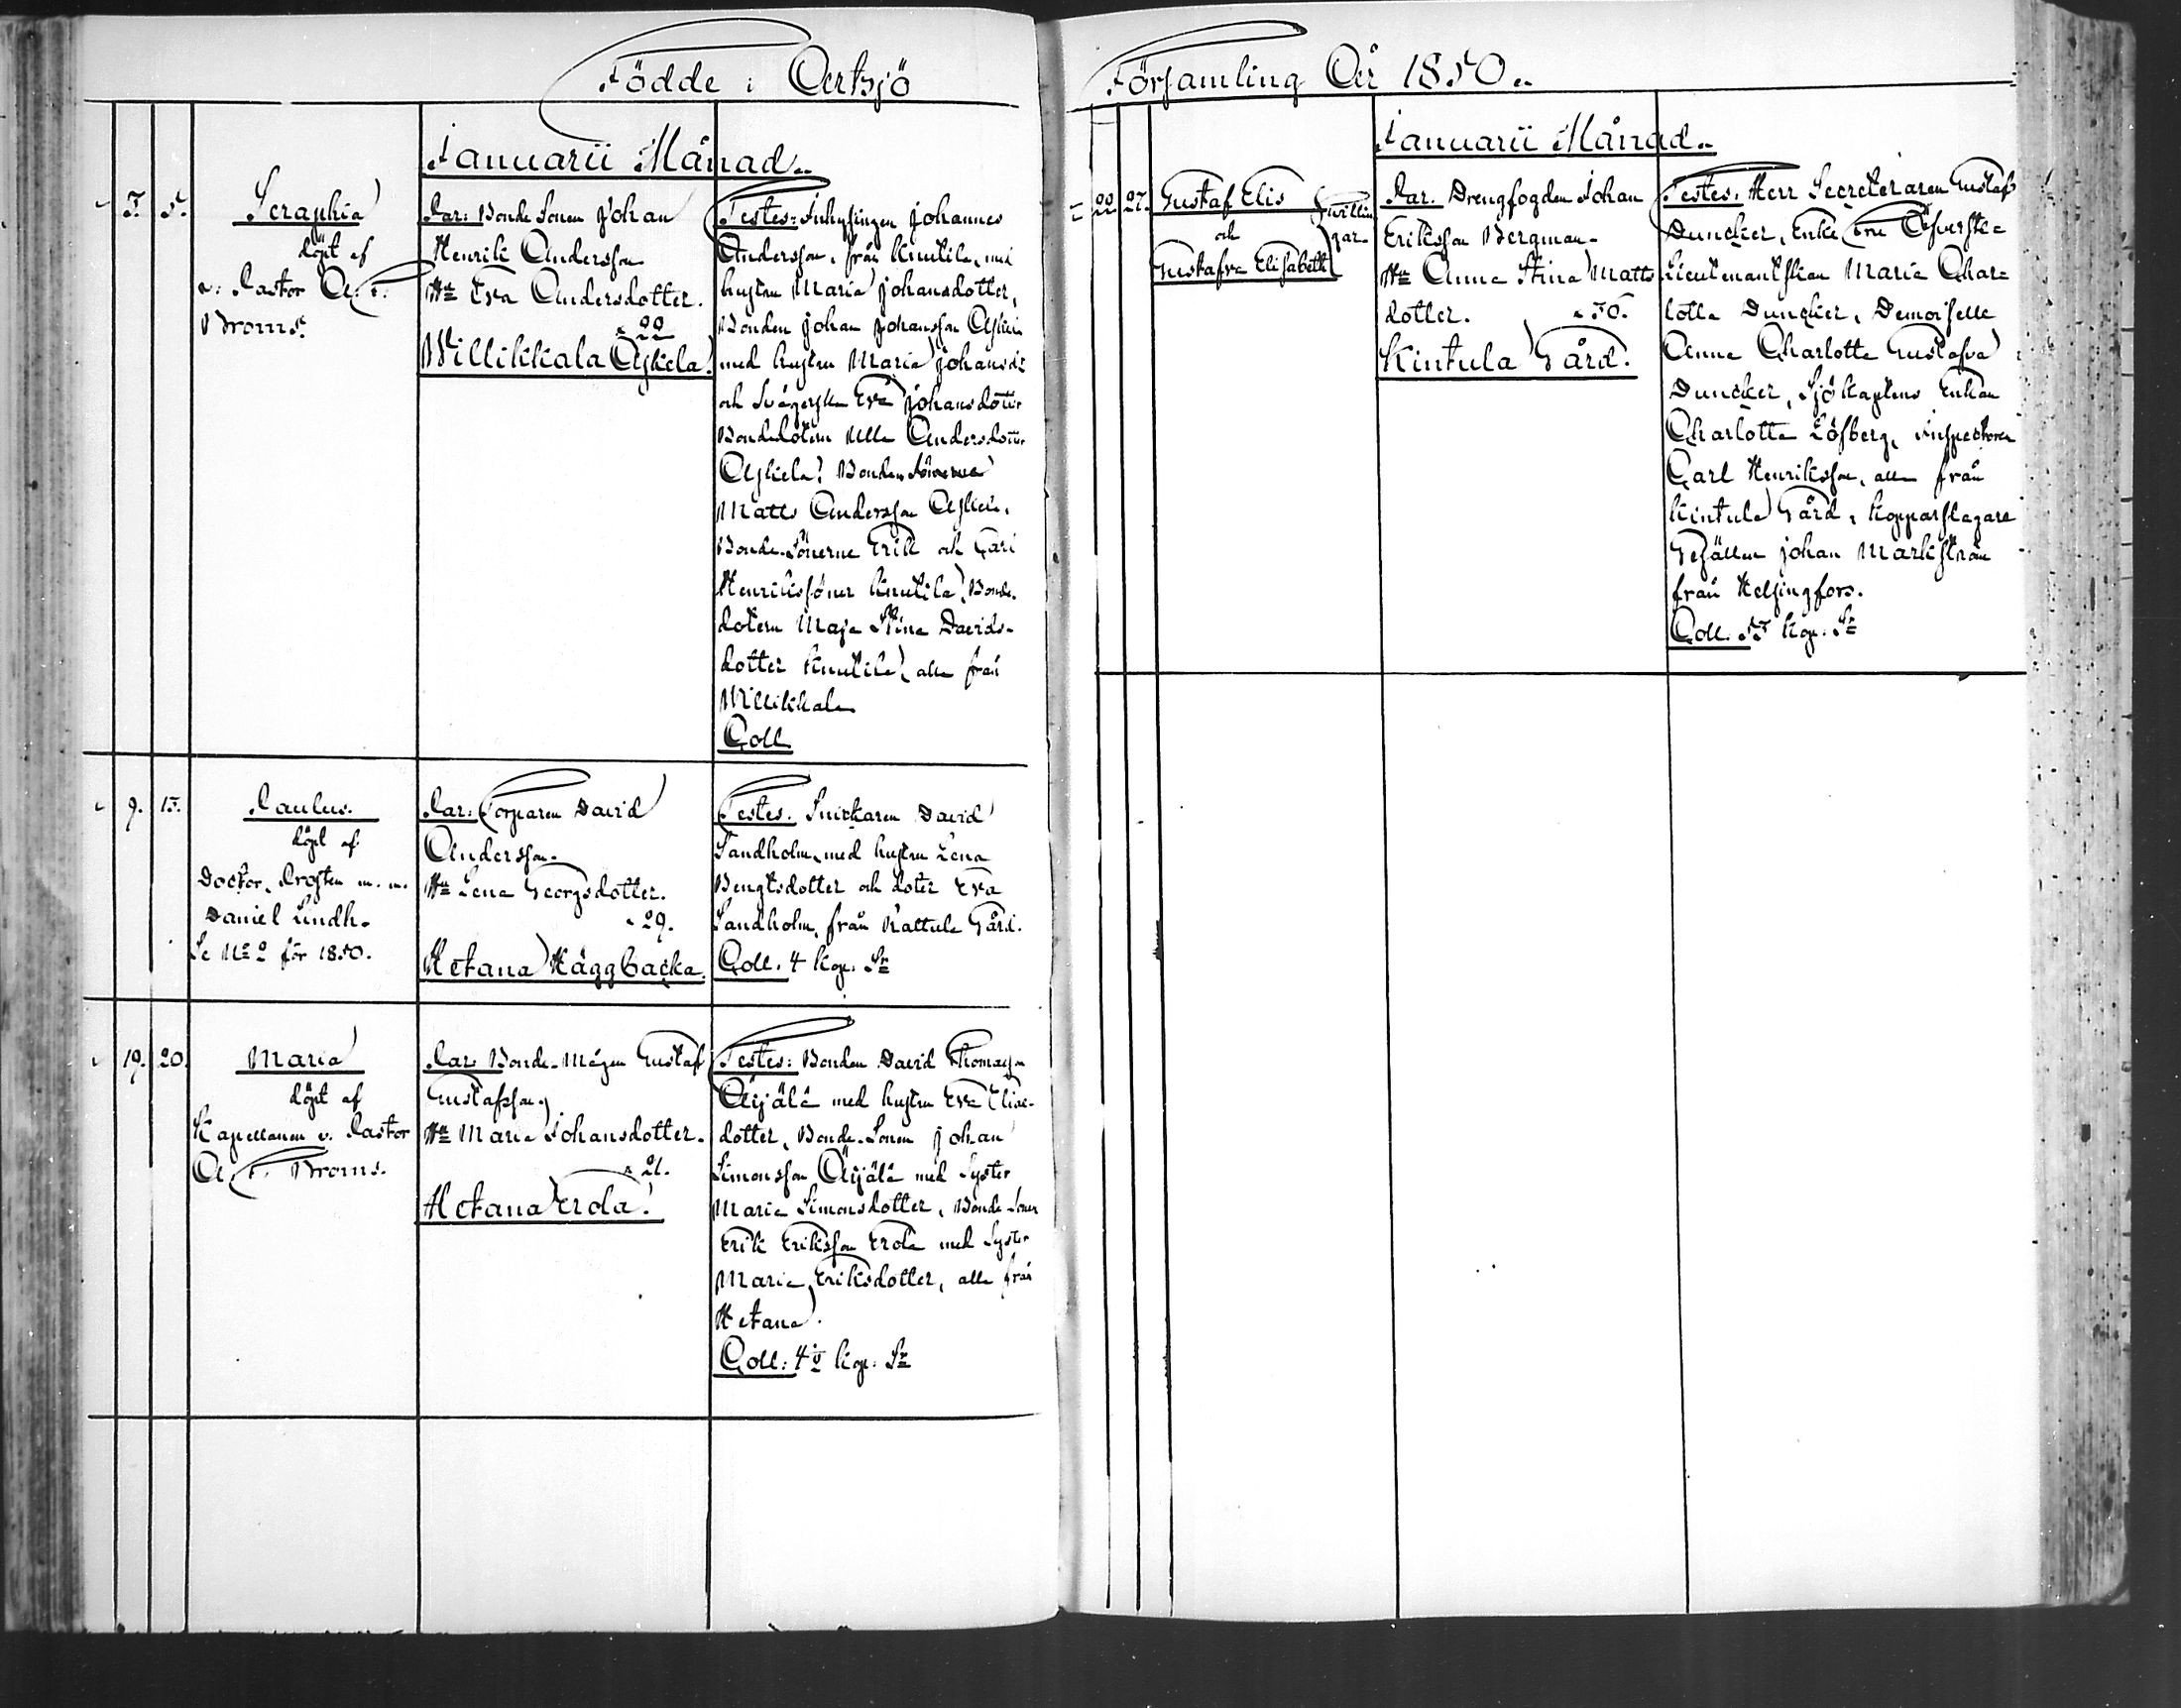 Födde i Artsjö
Januarii Månad.
3. 5. Seraphia
döpt af
v. Pastor A. F.
Broms.
Par: Bonde Sonen Johan
Henrik Andersson
Hu Eva Andersdotter.
22
Willikkala Askela.
Testes: Inhysingen Johannes
Andersson, från Knutila, med
hustru Maria Johansdotter,
Bonden Johan Johansson Askela
med hustru Maria Johansdr
och Svägerskan Eva Johansdotter
Bondedotern Ulla Andersdotter
Askela! Bonden
Matts Andersson Askela,
Bonde-Sönerne Erik och Carl
Henrikssöner Knutila, Bonde-
dotern Maja Stina Davids-
dotter Knutila, alla från
Willikkala
Coll.
9. 13. Paulus.
döpt af
Doctor, Prosten m. m.
Daniel Lindh.
Se No 2 för 1850.
Par: Torparen David
Andersson.
Hu Lena Georgsdotter.
29.
Hetana Häggbacka.
Testes. Snickaren David
Sandholm, med hustru Lena
Bengtsdotter och doter Eva
Sandholm, från Rattula Gård.
Coll. 4 kop. Sr
19. 20. Maria
döpt af
Kapellanen v. Pastor
A. F. Broms.
Par: Bonde-Mågen Gustaf
Gustafsson,
Hu Maria Johansdotter.
21.
Hetana Erola.
Testes: Bonden David Thomasson
Äijälä med hustru Eva Elias-
dotter, Bonde-Sonen Johan
Simonsson Äijälä med Syster
Maria Simonsdotter, Bonde-Sonen
Erik Eriksson Erola med Syster
Maria Eriksdotter, alla från
Hetana.
Coll: 4 kop. Sr
Församling År 1850.
Januarii Månad.
22 27. Gustaf Elis
och
Gustafva Elisabeth
Twillin
gar.
Par. Drengfogden Johan
Eriksson Bergman.
Hu Anna Stina Matts
dotter. 36.
Kintula Gård.
Testes: Herr Secreteraren Gustaf
Duncker, Enke Fru Öfverste-
Lieutenantskan Maria Char-
lotta Duncker, Demoiselle
Anna Charlotta Gustafva
Duncker, Sjökaptens Enkan
Charlotta Löfberg, Inspectoren
Carl Henriksson, alla från
Kintula Gård, Kopparslagare
Gesällen Johan Markström
från Helsingfors.
Coll. 53 kop. Sr